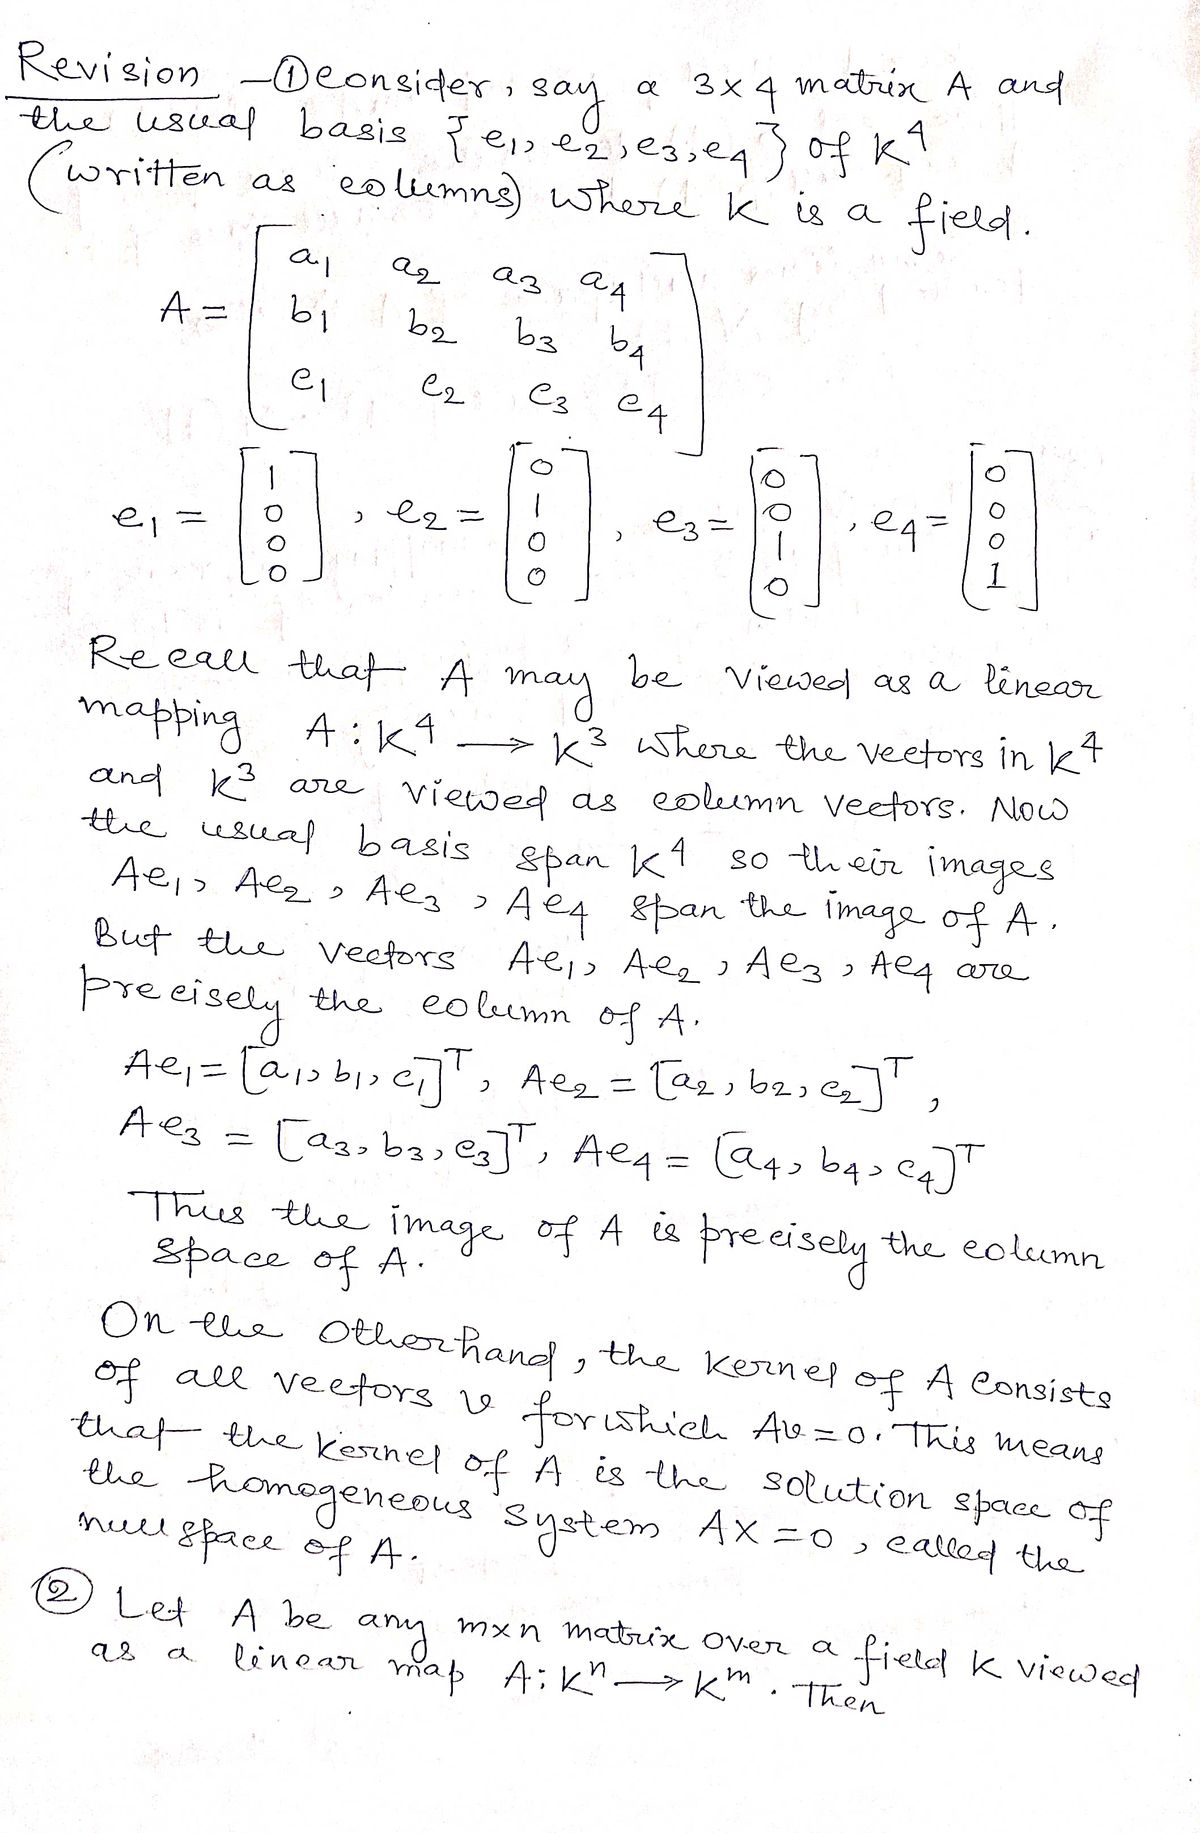 Revision - ① consider, say a 3×4 matrix A and
the usual basis {e1, e2, e3, e4} of K^4
(written as columns) where K is a field.
A = [ a1 a2 a3 a4
b1 b2 b3 b4
c1 c2 c3 c4 ]
e1 = [1 0 0 0], e2 = [0 1 0 0], e3 = [0 0 1 0], e4 = [0 0 0 1]
Recall that A may be viewed as a linear
mapping A : K^4 → K^3 where the vectors in K^4
and K^3 are viewed as column vectors. Now
the usual basis span K^4 so their images
Ae1, Ae2, Ae3, Ae4 span the image of A.
But the vectors Ae1, Ae2, Ae3, Ae4 are
precisely the column of A.
Ae1 = [a1, b1, c1]^T, Ae2 = [a2, b2, c2]^T,
Ae3 = [a3, b3, c3]^T, Ae4 = [a4, b4, c4]^T
Thus the image of A is precisely the column
space of A.
On the otherhand, the kernel of A consists
of all vectors v for which Av = 0. This means
that the kernel of A is the solution space of
the homogeneous system AX = 0, called the
null space of A.
② Let A be any m×n matrix over a field K viewed
as a linear map A: K^n → K^m. Then